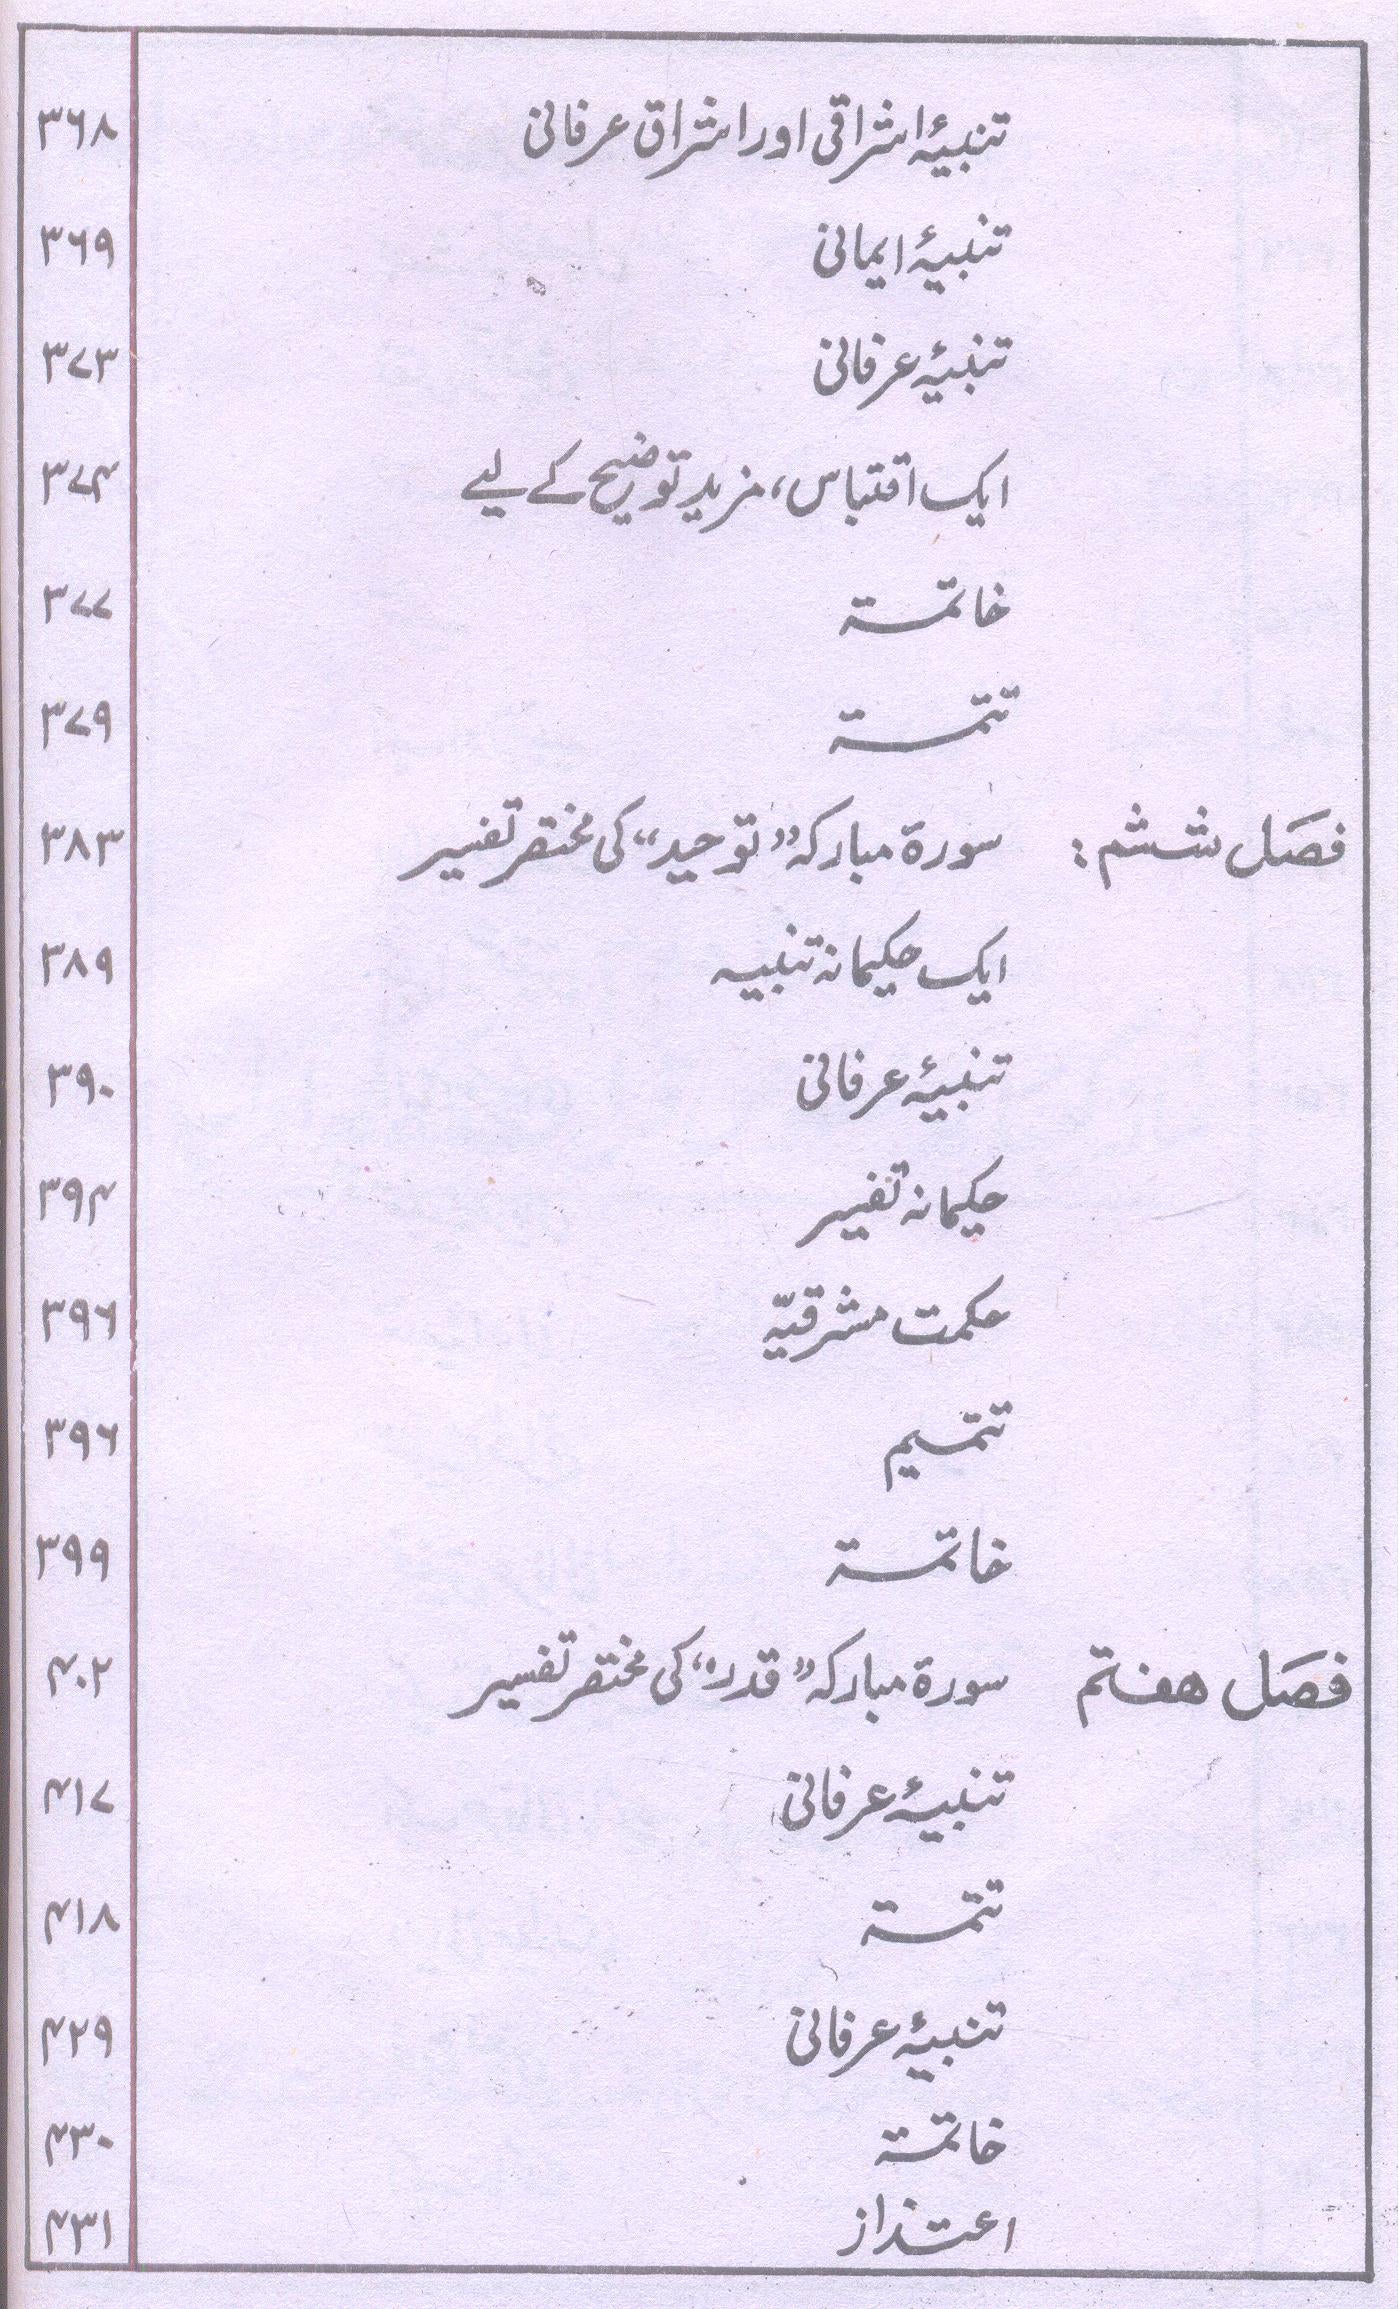 تنبیۂ اشراقی اور اشراق عرفانی ۳۶۸
تنبیۂ ایمانی ۳۶۹
تنبیۂ عرفانی ۳۷۳
ایک اقتباس، مزید توضیح کے لیے ۳۷۴
خاتمۃ ۳۷۷
تتمۃ ۳۷۹
فصل ششم: سورۃ مبارکہ ”توحید“ کی مختصر تفسیر ۳۸۳
ایک حکیمانہ تنبیہ ۳۸۹
تنبیۂ عرفانی ۳۹۰
حکیمانہ تفسیر ۳۹۴
حکمت مشرقیّہ ۳۹۶
تتمیم ۳۹۶
خاتمۃ ۳۹۹
فصل ھفتم سورۃ مبارکہ ”قدر“ کی مختصر تفسیر ۴۰۲
تنبیۂ عرفانی ۴۱۷
تتمۃ ۴۱۸
تنبیۂ عرفانی ۴۲۹
خاتمۃ ۴۳۰
اعتذاز ۴۳۱